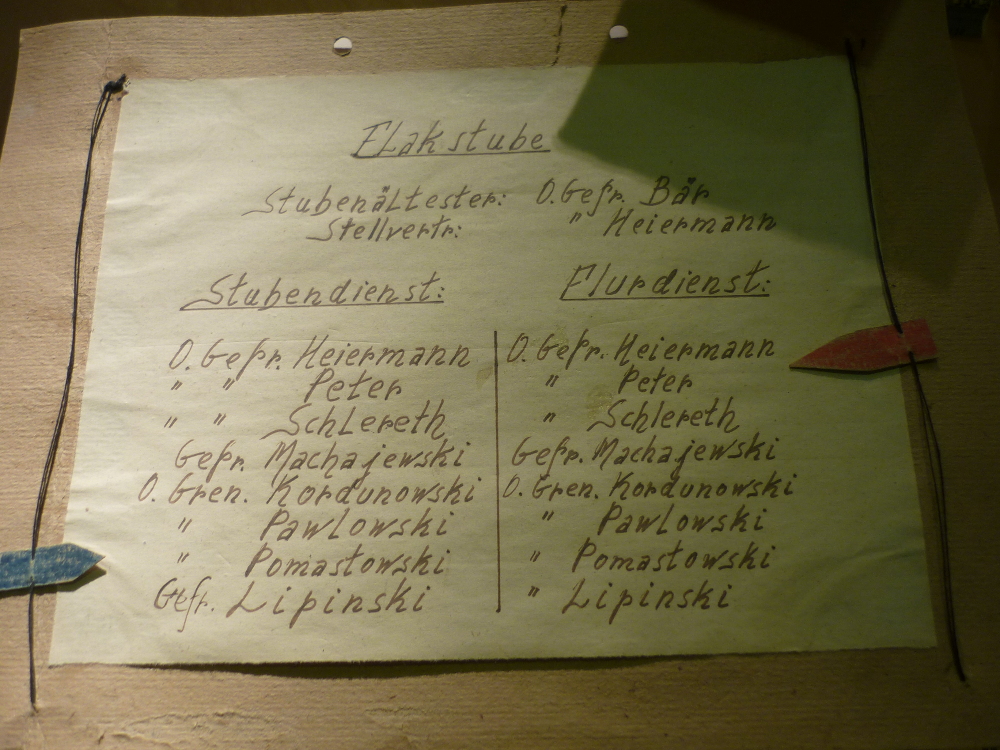 Flakstube
Stubenältester: O.Gefr. Bär
Stellvertr: " Heiermann
Stubendienst:
O. Gefr. Heiermann
" " Peter
" " Schlereth
Gefr. Machajewski
O. Gren. Kordunowski
" Pawlowski
" Pomastowski
Gefr. Lipinski
Flurdienst:
O. Gefr. Heiermann
" Peter
" Schlereth
Gefr. Machajewski
O. Gren. Kordunowski
" Pawlowski
" Pomastowski
" Lipinski